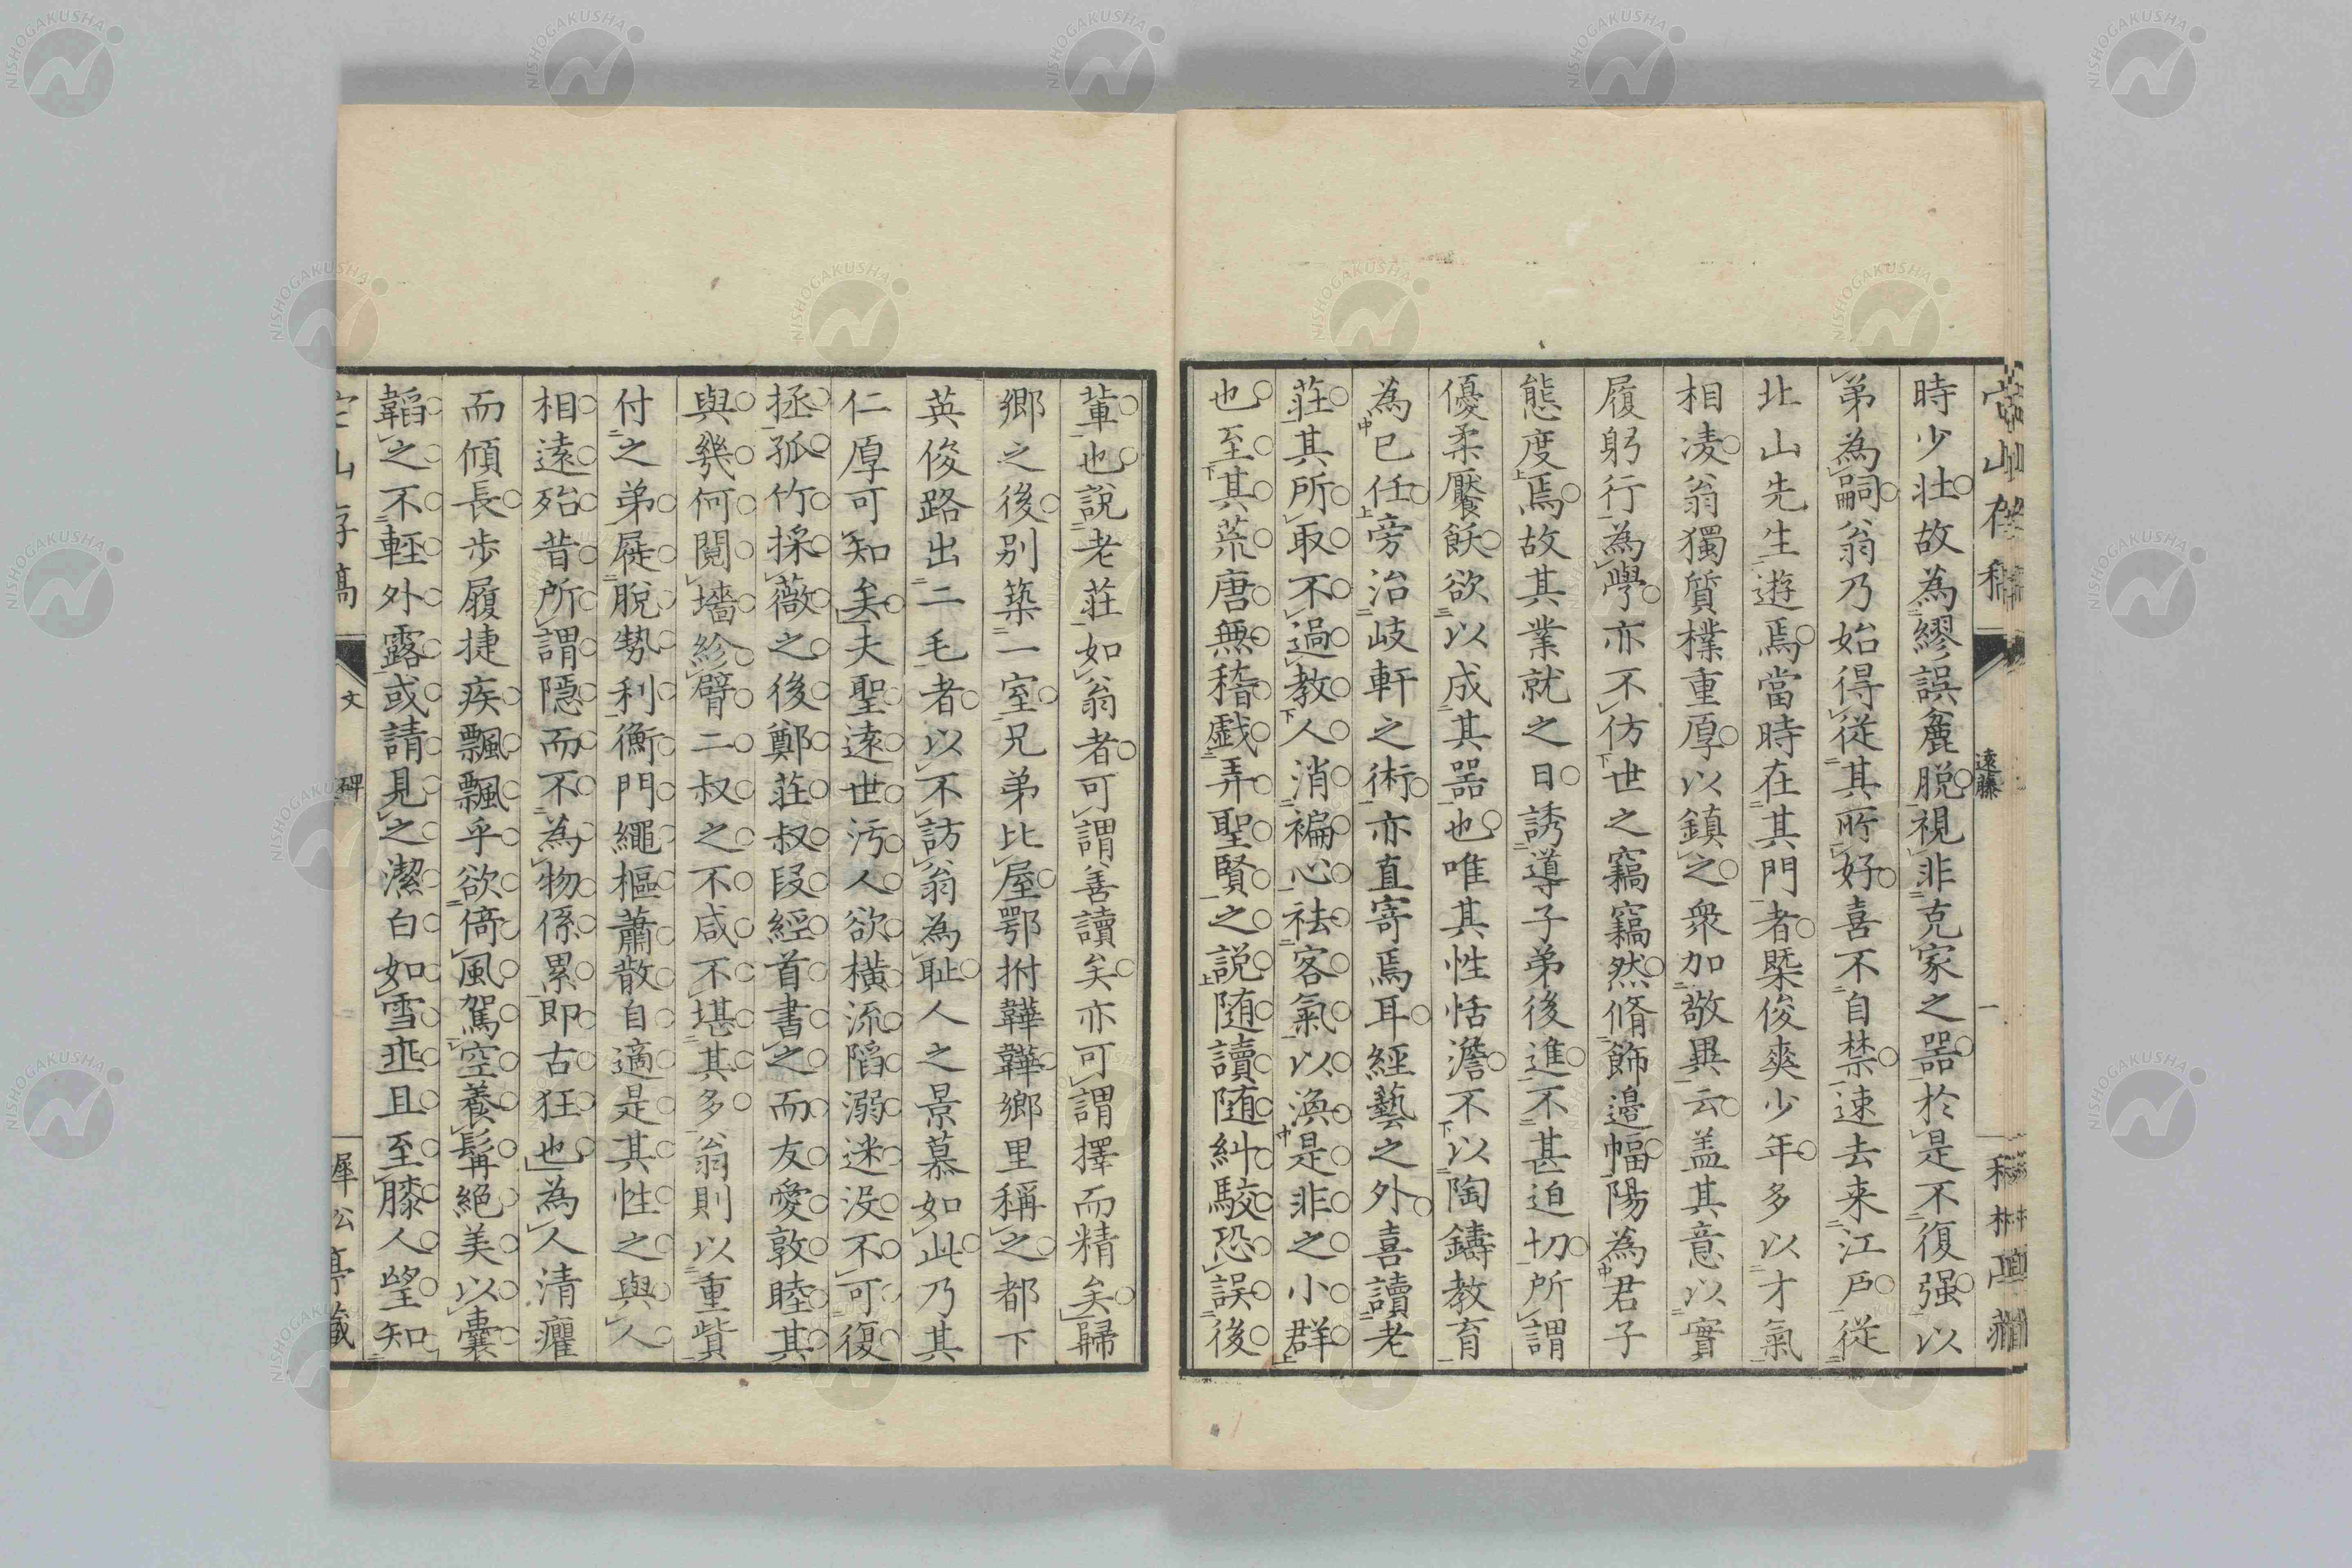 時少壮故為繆誤麁脱視非克家之器於是不復强以
弟為嗣翁乃始得従其所好喜不自禁速去来江戸従
北山先生遊焉當時在其門者槩俊爽少年多以才氣
相凌翁獨質樸重厚以鎮之衆加敬異云盖其意以實
履躬行為學亦不仿世之竊竊然脩飾邉幅陽為君子
態度焉故其業就之日誘導子弟後進不甚迫切所謂
優柔饜飫欲以成其器也唯其性恬澹不以陶鑄教育
為已任旁治岐軒之術亦直寄焉耳經藝之外喜讀老
莊其所取不過教人消褊心祛客氣以渙是非之小群
也至其荒唐無稽戯弄聖賢之説随讀随糾駮恐誤後
輩也説老莊如翁者可謂善讀矣亦可謂擇而精矣歸
郷之後別築一室兄弟比屋鄂拊韡韡郷里稱之都下
英俊路出二毛者以不訪翁為耻人之景慕如此乃其
仁厚可知矣夫聖遠世汚人欲横流䧟溺迷没不可復
拯孤竹採薇之後鄭莊叔段經首書之而友愛敦睦其
與幾何閲墻紾臂二叔之不咸不堪其多翁則以重貲
付之弟屣脱勢利衡門繩樞蕭散自適是其性之與人
相遠殆昔所謂隠而不為物係累即古狂也為人清癯
而傾長歩履捷疾飄飄乎欲倚風駕空養髯絶美以嚢
韜之不輕外露或請見之潔白如雪垂且至膝人望知
遠藤
一
文
碑